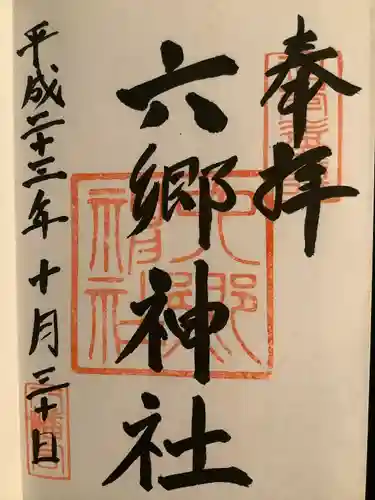 奉拝
六郷神社
平成二十三年十月三十日
六郷神社